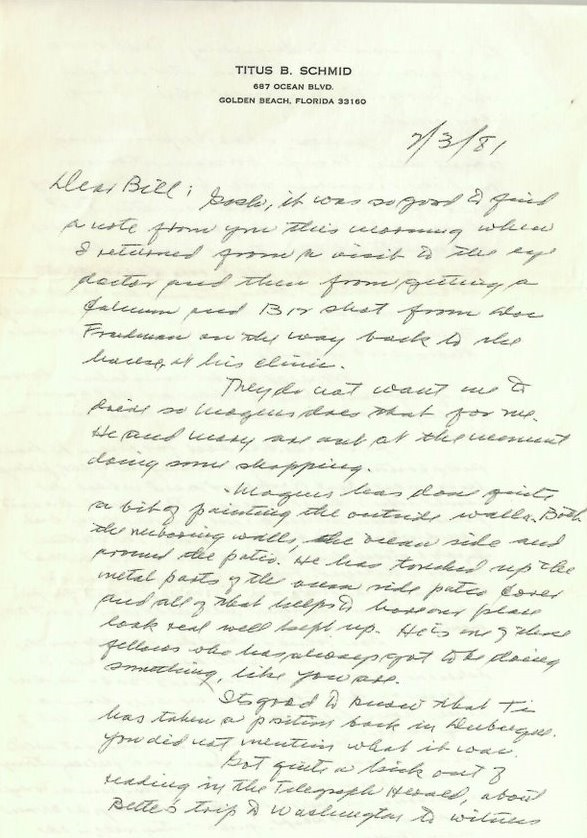 TITUS B. SCHMID
687 OCEAN BLVD.
GOLDEN BEACH, FLORIDA 33160
2/3/81
Dear Bill: Gosh, it was so good to find
a note from you this morning when
I returned from a visit to the eye
doctor and then from getting a
Calcium and B12 shot from Doc
on the way back to the
house, at his clinic.
They do not want me to
drive so Mogens does that for me.
He and Mary are out at the moment
doing some shopping.
Mogens has done quite
a bit of painting the outside walls. Both
the walls, the ocean side and
around the patio. He has touched up the
metal parts of the ocean side patio cover
and all of that helps to have our place
look real well kept up. He is one of those
fellows who has always got to be doing
something, like you are.
Its good to know that Ti
has taken a position back in Dubuque.
You did not mention what it was.
Got quite a kick out of
reading in the Telegraph Herald, about
Bette's trip to Washington to witness